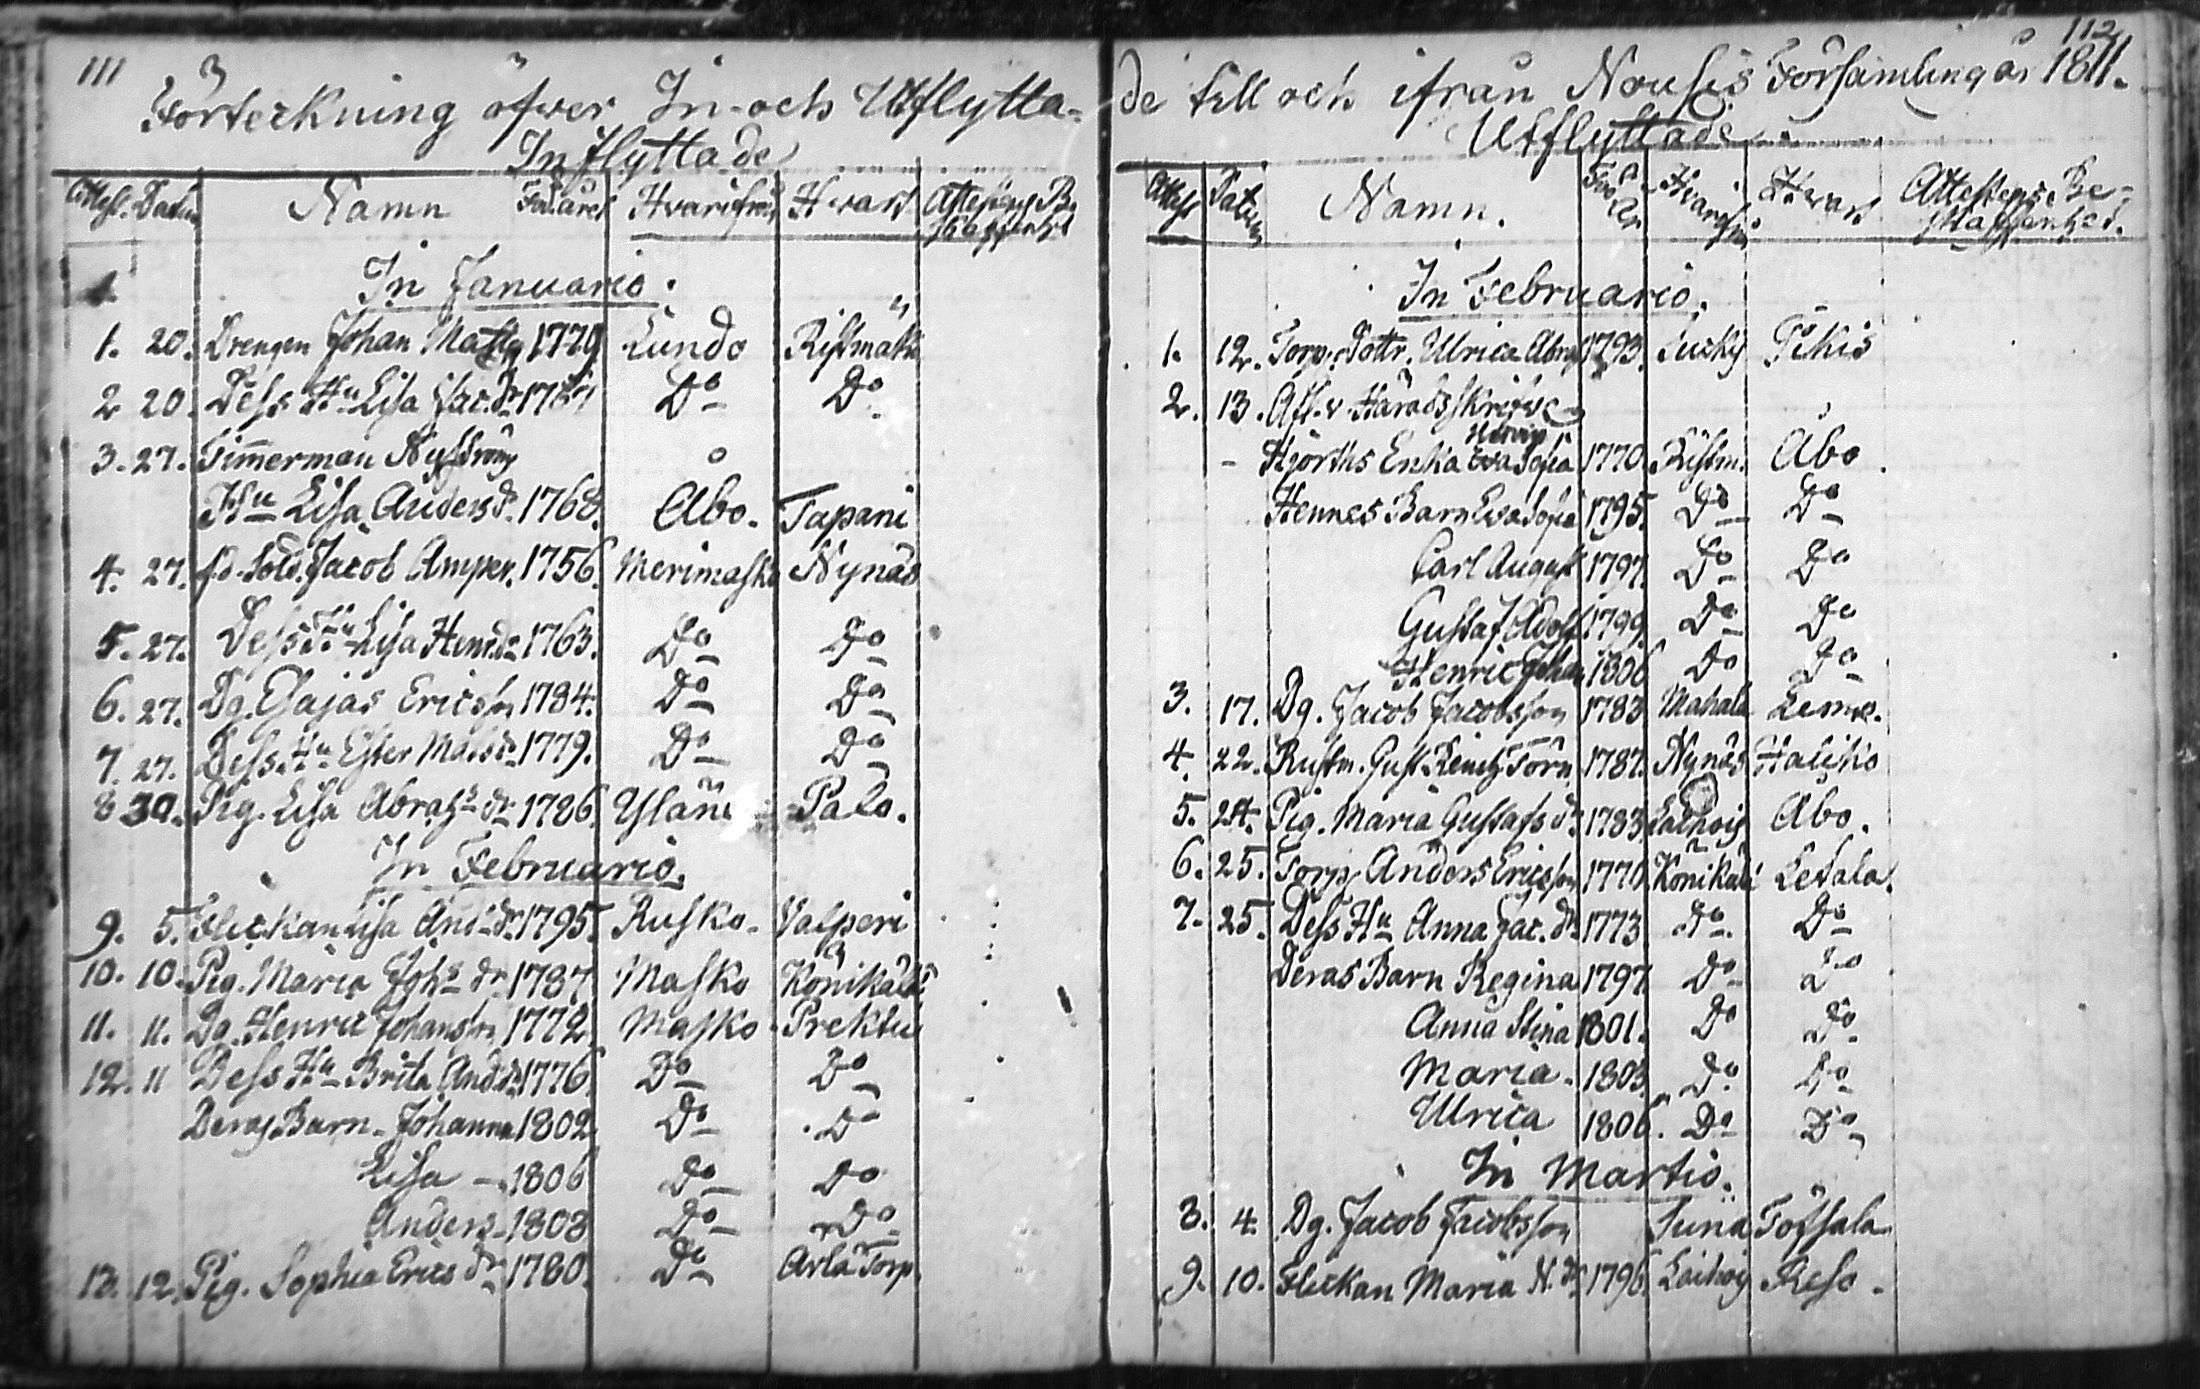 111
Förteckning öfver In- och Utflytta-
Inflyttade
Attest. Datum Namn Föd. året Hvarifrån Hvart Attestens Be-
skaffenhet
In Januario.
1. 20. Drengen Johan Matts 1779 Lundo Ristmaki
2 20. Dess Hu Lisa Jac. dr Do Do
3. 27. Timmerman Nyström
Hu Lisa Anders d. 1768. Åbo. Tapani
4. 27. fd. Sold. Jacob Amper. 1756. Merimasku Nynäs
5. 27. Dess Hu Lisa Henr. dr 1763. Do Do
6. 27. Dg. Esajas Ericsson 1784. Do Do
7. 27. Dess Hu Ester Mats dr 1779. Do Do
8 30. Pig. Lisa Abrahs dr 1786. Yläne Palo.
In Februario.
9. 5. Flickan Lisa And. dr 1795. Rusko. Valperi
10. 10. Pig. Maria Johs dr 1787 Masko Könikälä
11. 11. Dg. Henric Johansson 1772 Masko Prektu
12. 11 Dess Hu Brita And. dr 1776 Do Do
Deras Barn. Johanna 1802 Do Do
Lisa 1806 Do Do
Anders 1808 Do Do
13. 12. Pig. Sophia Erics dr 1780. Do Arla Torp.
112
de till och ifrån Nousis Församling år 1811.
Utflyttade
Attest Datum Namn. Föd. År Hvarifrån Hvart Attestens Be-
skaffenhet.
In Februario.
1. 12. Torp. Dottr. Ulrica Abra 1793. Pikis
2. 13. Afl. v. Häradsskrifve-
Hedvig
Hjorths Enka Eva Sofia 1770. Ristm. Åbo.
Hennes Barn Eva Sofia 1795. Do Do
Carl August 1797. Do Do
Gustaf Adolf 1799. Do Do
Henric Johan 1806 Do Do
3. 17. Dg. Jacob Jacobsson 1783 Mahala Lemo.
4. 22. Rustm. Gust. Törn 1787. Nynäs Haliko
5. 24. Pig. Maria Gustafs dr 1783 Laihois Åbo.
6. 25. Torp. Anders Ericsson 1770 Könikälä Letala.
7. 25. Dess Hu Anna Jac. dr 1773 Do Do
Deras Barn Regina 1797. Do Do
Anna Stina 1801. Do Do
Maria. 1803. Do Do
Ulrica 1806. Do Do
In Martio.
8. 4. Dg. Jacob Jacobsson Juna Töfsala
9. 10. Flickan Maria N. dr 1796. Laihois Reso.